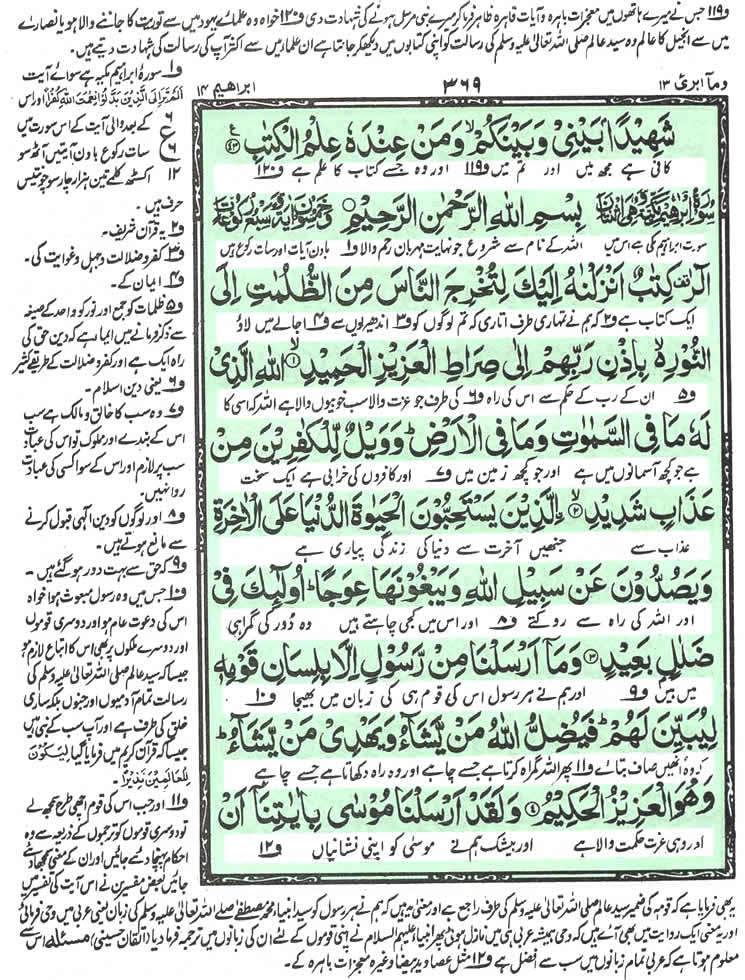 و۱۱۹ جس نے میرے ہاتھوں میں معجزات باہرہ و آیات قاہرہ ظاہر فرما کر میرے نبی مرسل ہونے کی شہادت دی و۱۲۰ خواہ وہ علمائے یہود میں سے توریت کا جاننے والا ہو یا نصاریٰ
میں سے انجیل کا عالم وہ سید عالم صلی اللہ تعالیٰ علیہ وسلم کی رسالت کو اپنی کتابوں میں دیکھ کر جانتا ہے ان علماء میں سے اکثر آپ کی رسالت کی شہادت دیتے ہیں۔
وما ابرئ ۱۳
۳۶۹
ابراھیم ۱۴
شَهِيْدًۢا بَيْنِيْ وَبَيْنَكُمْ ۙ وَمَنْ عِنْدَهٗ عِلْمُ الْكِتٰبِ ۴۳
کافی ہے مجھ میں اور تم میں و۱۱۹ اور وہ جسے کتاب کا علم ہے و۱۲۰
بِسْمِ اللّٰهِ الرَّحْمٰنِ الرَّحِيْمِ
سورت ابراہیم مکی ہے اس میں اللہ کے نام سے شروع جو نہایت مہربان رحم والا و۱ باون آیات اور سات رکوع ہیں
الٓرٰ كِتٰبٌ اَنْزَلْنٰهُ اِلَيْكَ لِتُخْرِجَ النَّاسَ مِنَ الظُّلُمٰتِ اِلَى
ایک کتاب ہے و۲ کہ ہم نے تمہاری طرف اتاری کہ تم لوگوں کو و۳ اندھیریوں سے و۴ اجالے میں لاؤ
النُّوْرِ ۙ بِاِذْنِ رَبِّهِمْ اِلٰى صِرَاطِ الْعَزِيْزِ الْحَمِيْدِ ۙ۱ اللّٰهِ الَّذِيْ
و۵ ان کے رب کے حکم سے اس کی راہ و۶ کی طرف جو عزت والا سب خوبیوں والا ہے اللہ کہ اسی کا
لَهٗ مَا فِي السَّمٰوٰتِ وَمَا فِي الْاَرْضِ ؕ وَوَيْلٌ لِّلْكٰفِرِيْنَ مِنْ
ہے جو کچھ آسمانوں میں ہے اور جو کچھ زمین میں و۷ اور کافروں کی خرابی ہے ایک سخت
عَذَابٍ شَدِيْدِ ۙ۲ الَّذِيْنَ يَسْتَحِبُّوْنَ الْحَيٰوةَ الدُّنْيَا عَلَى الْاٰخِرَةِ
عذاب سے جنھیں آخرت سے دنیا کی زندگی پیاری ہے
وَيَصُدُّوْنَ عَنْ سَبِيْلِ اللّٰهِ وَيَبْغُوْنَهَا عِوَجًا ؕ اُولٰٓئِكَ فِيْ
اور اللہ کی راہ سے روکتے و۸ اور اس میں کجی چاہتے ہیں وہ دور کی گمراہی
ضَلٰلٍۢ بَعِيْدٍ ۳ وَمَاۤ اَرْسَلْنَا مِنْ رَّسُوْلٍ اِلَّا بِلِسَانِ قَوْمِهٖ
میں ہیں و۹ اور ہم نے ہر رسول اس کی قوم ہی کی زبان میں بھیجا و۱۰
لِيُبَيِّنَ لَهُمْ ؕ فَيُضِلُّ اللّٰهُ مَنْ يَّشَآءُ وَيَهْدِيْ مَنْ يَّشَآءُ ؕ
کہ وہ انھیں صاف بتائے و۱۱ پھر اللہ گمراہ کرتا ہے جسے چاہے اور وہ راہ دکھاتا ہے جسے چاہے
وَهُوَ الْعَزِيْزُ الْحَكِيْمُ ۴ وَلَقَدْ اَرْسَلْنَا مُوْسٰى بِاٰيٰتِنَاۤ اَنْ
اور وہی عزت حکمت والا ہے اور بیشک ہم نے موسیٰ کو اپنی نشانیاں و۱۲
و۱ سورۂ ابراہیم مکیہ ہے سوائے آیت
اَلَمْ تَرَ اِلَى الَّذِيْنَ بَدَّلُوْا نِعْمَتَ اللّٰهِ كُفْرًا اور اس
کے بعد والی آیت کے اس سورت میں
سات رکوع باون آیتیں آٹھ سو
اکسٹھ کلمے تین ہزار چار سو چونتیس
حرف ہیں۔
۶
ع
۶
۱۲
و۲ یہ قرآن شریف۔
و۳ کفر و ضلالت و جہل و غوایت کی۔
و۴ ایمان کے۔
و۵ ظلمات کو جمع اور نور کو واحد کے صیغہ
سے ذکر فرمانے میں ایما ہے کہ دین حق کی
راہ ایک ہے اور کفر و ضلالت کے طریقے کثیر
و۶ یعنی دین اسلام۔
و۷ وہ سب کا خالق و مالک ہے سب
اس کے بندے اور مملوک تو اس کی عبادت
سب پر لازم اور اس کے سوا کسی کی عبادت
روا نہیں۔
و۸ اور لوگوں کو دین الٰہی قبول کرنے
سے مانع ہوتے ہیں۔
و۹ کہ حق سے بہت دور ہو گئے ہیں۔
و۱۰ جس میں وہ رسول مبعوث ہوا خواہ
اس کی دعوت عام ہو اور دوسری قوموں
اور دوسرے ملکوں پر بھی اس کا اتباع لازم ہو
جیسا کہ سید عالم صلی اللہ تعالیٰ علیہ وسلم کی
رسالت تمام آدمیوں اور جنوں بلکہ ساری
خلق کی طرف ہے اور آپ سب کے نبی ہیں
جیسا کہ قرآن کریم میں فرمایا گیا لِيَكُوْنَ
لِلْعٰلَمِيْنَ نَذِيْرًا۔
و۱۱ اور جب اس کی قوم اچھی طرح سمجھ لے
تو دوسری قوموں کو ترجموں کے ذریعہ سے وہ
احکام پہنچا دیے جائیں اور ان کے معنی سمجھا دیئے
جائیں بعض مفسرین نے اس آیت کی تفسیر میں
یہ بھی فرمایا ہے کہ قومہ کی ضمیر سید عالم صلی اللہ تعالیٰ علیہ وسلم کی طرف راجع ہے اور معنی یہ ہیں کہ ہم نے ہر رسول کو سید انبیاء محمد مصطفےٰ صلے اللہ تعالیٰ علیہ وسلم کی زبان یعنی عربی میں وحی فرمائی
اور یہ معنی ایک روایت میں بھی آئے ہیں کہ وحی ہمیشہ عربی ہی میں نازل ہوئی پھر انبیاء علیہم السلام نے اپنی قوموں کے لئے ان کی زبانوں میں ترجمہ فرما دیا (اتقان حسینی) مسئلہ اس سے
معلوم ہوتا ہے کہ عربی تمام زبانوں میں سب سے افضل ہے و۱۲ مثل عصا و ید بیضا وغیرہ معجزات باہرہ کے۔